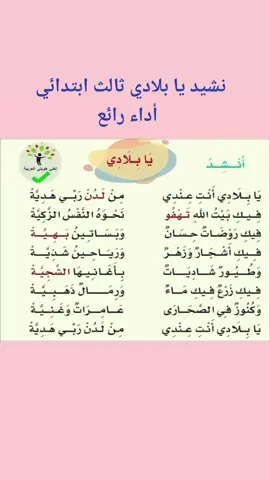 نشيد يا بلادي ثالث ابتدائي
أداء رائع
لغتي هويتي العربية
أُنْشِدُ
يَا بِلَادِي
يَا بِلَادِي أَنْتِ عِنْدِي مِنْ لَدُنْ رَبِّي هَدِيَّةْ
فِيكِ بَيْتُ اللهِ تَهْفُو نَحْوَهُ النَّفْسُ الزَّكِيَّةْ
فِيكِ رَوْضَاتٌ حِسَانٌ وَبَسَاتِينُ بَهِيَّةْ
فِيكِ أَشْجَارٌ وَزَهْرٌ وَرَيَاحِينُ شَذِيَّةْ
وَطُيُورٌ شَادِيَاتٌ بِأَغَانِيهَا الشَّجِيَّةْ
فِيكِ زَرْعٌ فِيكِ مَاءٌ وَرِمَالٌ ذَهَبِيَّةْ
وَكُنُوزٌ فِي الصَّحَارَى عَامِرَاتٌ وَغَنِيَّةْ
يَا بِلَادِي أَنْتِ عِنْدِي مِنْ لَدُنْ رَبِّي هَدِيَّةْ